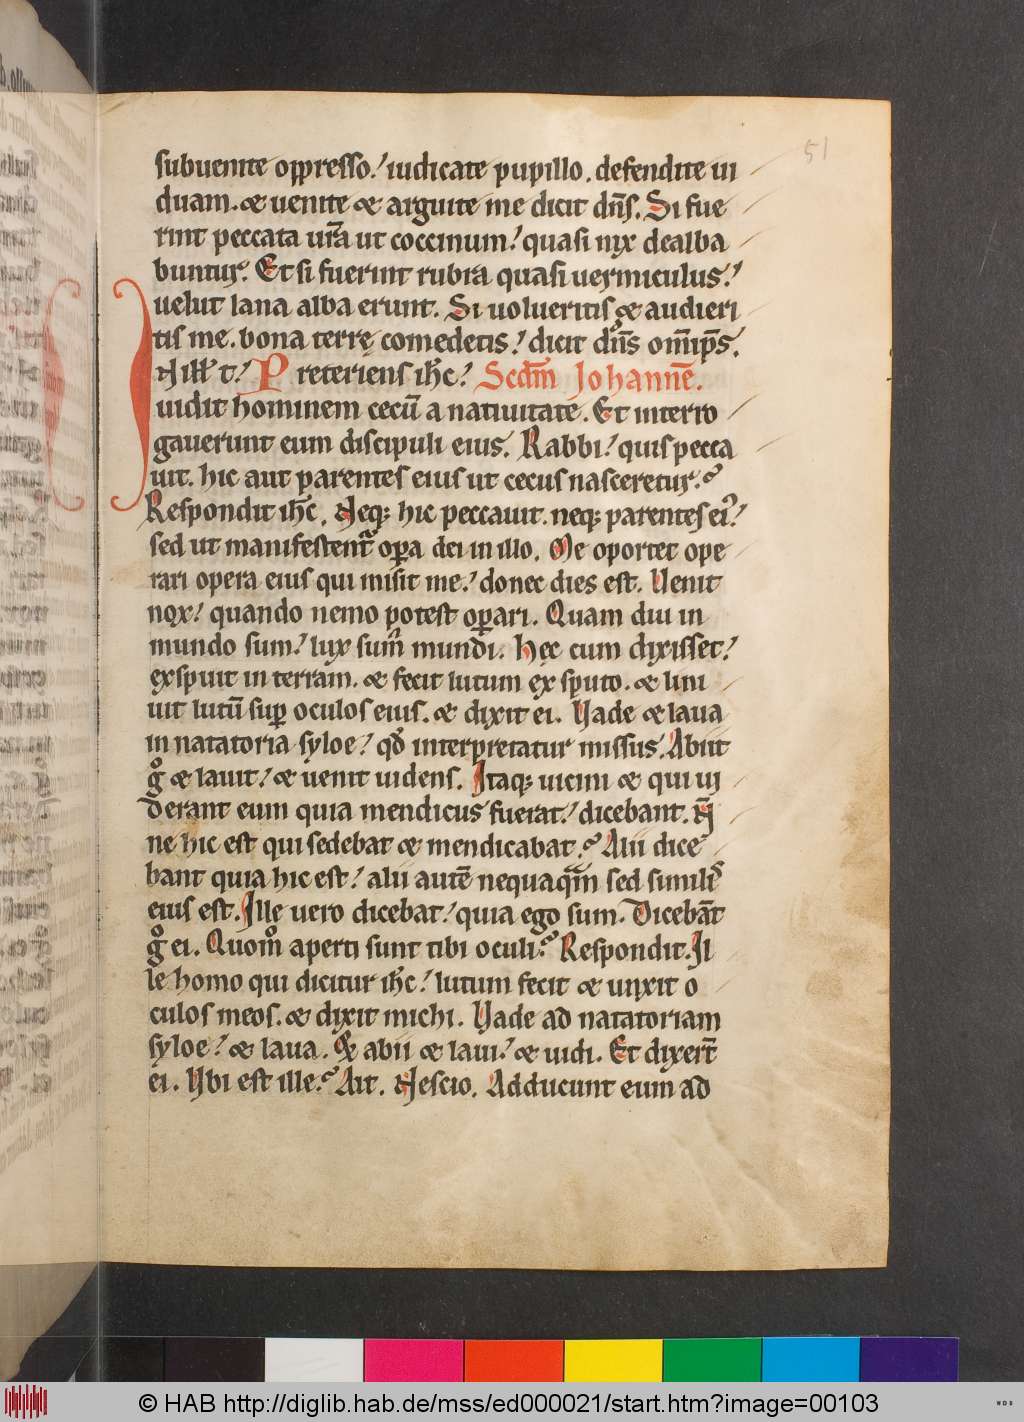 51
subuenite oppresso. iudicate pupillo. defendite ui
duam. & uenite & arguite me dicit dñs. Si fue
rint peccata ura ut coccinum. quasi nix dealba
buntur. Et si fuerint rubra quasi uermiculus.
uelut lana alba erunt. Si uolueritis & audieri
tis me. bona terrę comedetis. dicit dñs omĩps.
In ill t. Preteriens ihc. Scdm Johannē.
uidit hominem cecū a natiuitate. Et interro
gauerunt eum discipuli eius. Rabbi. quis pecca
uit. hic aut parentes eius ut cecus nasceretur.
Respondit ihc. Neq; hic peccauit. neq; parentes ei'.
sed ut manifestent opa dei in illo. Me oportet ope
rari opera eius qui misit me. donec dies est. Uenit
nox. quando nemo potest opari. Quam diu in
mundo sum. lux sum mundi. Hęc cum dixisset.
exspuit in terram. & fecit lutum ex sputo. & lini
uit lutū sup oculos eius. & dixit ei. Uade & laua
in natatoria syloe. qd interpretatur missus. Abiit
g° & lauit. & uenit uidens. Itaq; uicini & qui ui
derant eum quia mendicus fuerat. dicebant. Nō
ne hic est qui sedebat & mendicabat. Alii dice
bant quia hic est. alii autē nequaqm sed similis
eius est. Ille uero dicebat. quia ego sum. Dicebāt
g° ei. Quom° aperti sunt tibi oculi. Respondit. Il
le homo qui dicitur ihc. lutum fecit & unxit o
culos meos. & dixit michi. Uade ad natatoriam
syloe. & laua. Et abii & laui. & uidi. Et dixert
ei. Ubi est ille. Ait. Nescio. Adducunt eum ad
© HAB http://diglib.hab.de/mss/ed000021/start.htm?image=00103